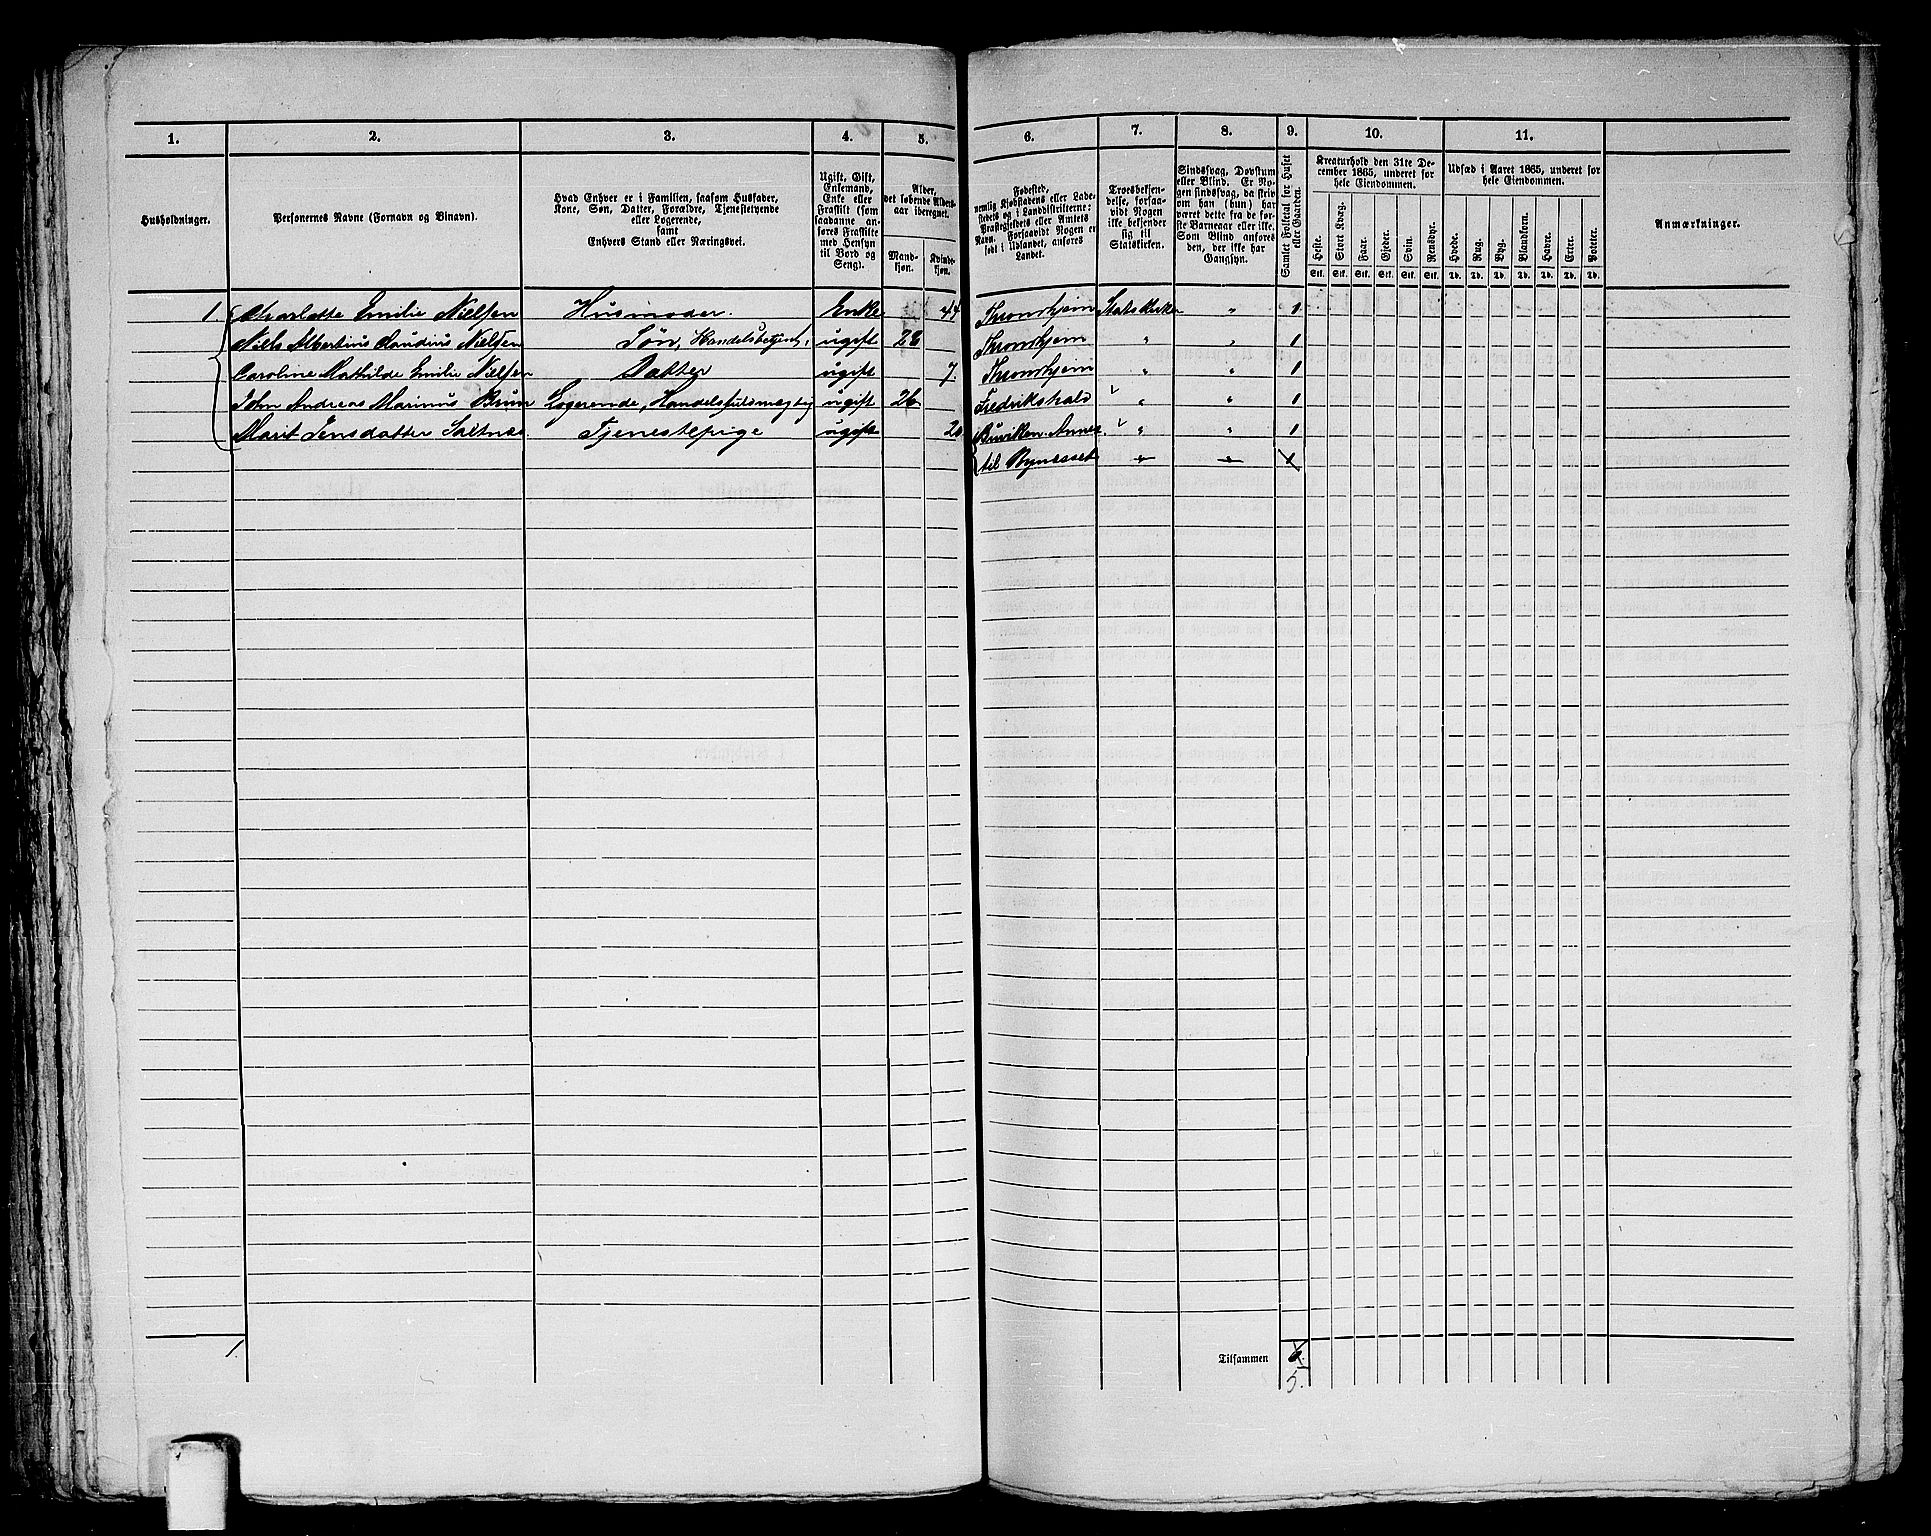 1. 2. 3. 4. 5. 6. 7. 8. 9. 10. 11.
Husholdninger.
Personernes Navne (Fornavn og Binavn).
Hvad Enhver er i Familien, saasom Husfader,
Kone, Søn, Datter, Forældre, Tjenestetyende
eller Logerende,
samt
Enhvers Stand eller Næringsvei.
Ugift, Gift,
Enkemand,
Enke eller
Fraskilt (som
saadanne an-
føres Fraskilte
med Hensyn
til Bord og
Seng).
Alder,
det løbende Alders-
aar iberegnet.
Mand-
kjøn.
Kvinde-
kjøn.
Fødested,
nemlig Kjøbstadens eller Lade-
stedets og i Landdistrikterne:
Præstegjeldets eller Amtets
Navn. Forsaavidt Nogen er
født i Udlandet, anføres
Landet.
Troesbekjen-
delse, forsaa-
vidt Nogen
ikke bekjender
sig til
Statskirken.
Sindssvag, Døvstum
eller Blind. Er No-
gen sindssvag, da skriv
om han (hun) har
været dette fra de før-
ste Barneaar eller ikke.
Som Blind anføres
den, der ikke har
Gangsyn.
Samlet Folketal for Huset
eller Gaarden.
Kreaturhold den 31te De-
cember 1865, underet for
hele Eiendommen.
Heste. Stort Kvæg. Faar. Gjeder. Svin. Rensdyr.
Stk. Stk. Stk. Stk. Stk. Stk.
Udsæd i Aaret 1865, underet for
hele Eiendommen.
Hvede. Rug. Byg. Blandkorn. Havre. Erter. Poteter.
Td. Td. Td. Td. Td. Td. Td.
Anmærkninger.
1. Charlotte Emilie Nielsen Husmoder. Enke 44 Throndhjem Statskirken " 1
Niels Albertius Claudius Nielsen Søn, Handelsbetjent, ugift 28 Throndhjem " " 1
Caroline Mathilde Emilie Nielsen Datter ugift 7. Throndhjem " " 1
John Andreas Marinus Brun Logerende, Handelsfuldmægtig ugift 26 Fredrikshald " " 1
Marit Jensdatter Saltnæs. Tjenestepige ugift Buvikken Annex " " 1
til Bynesset " " 1
1
Tilsammen 6.
5.